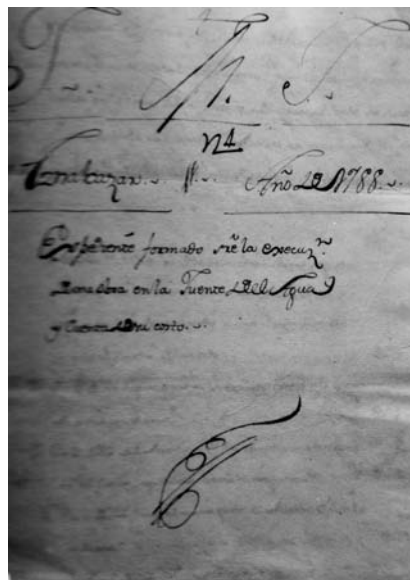 J. M. J.
Año de 1788.
Expediente formado sre la execuzn.
de una obra en la Fuente del Agua
y Cuenta de su costo.